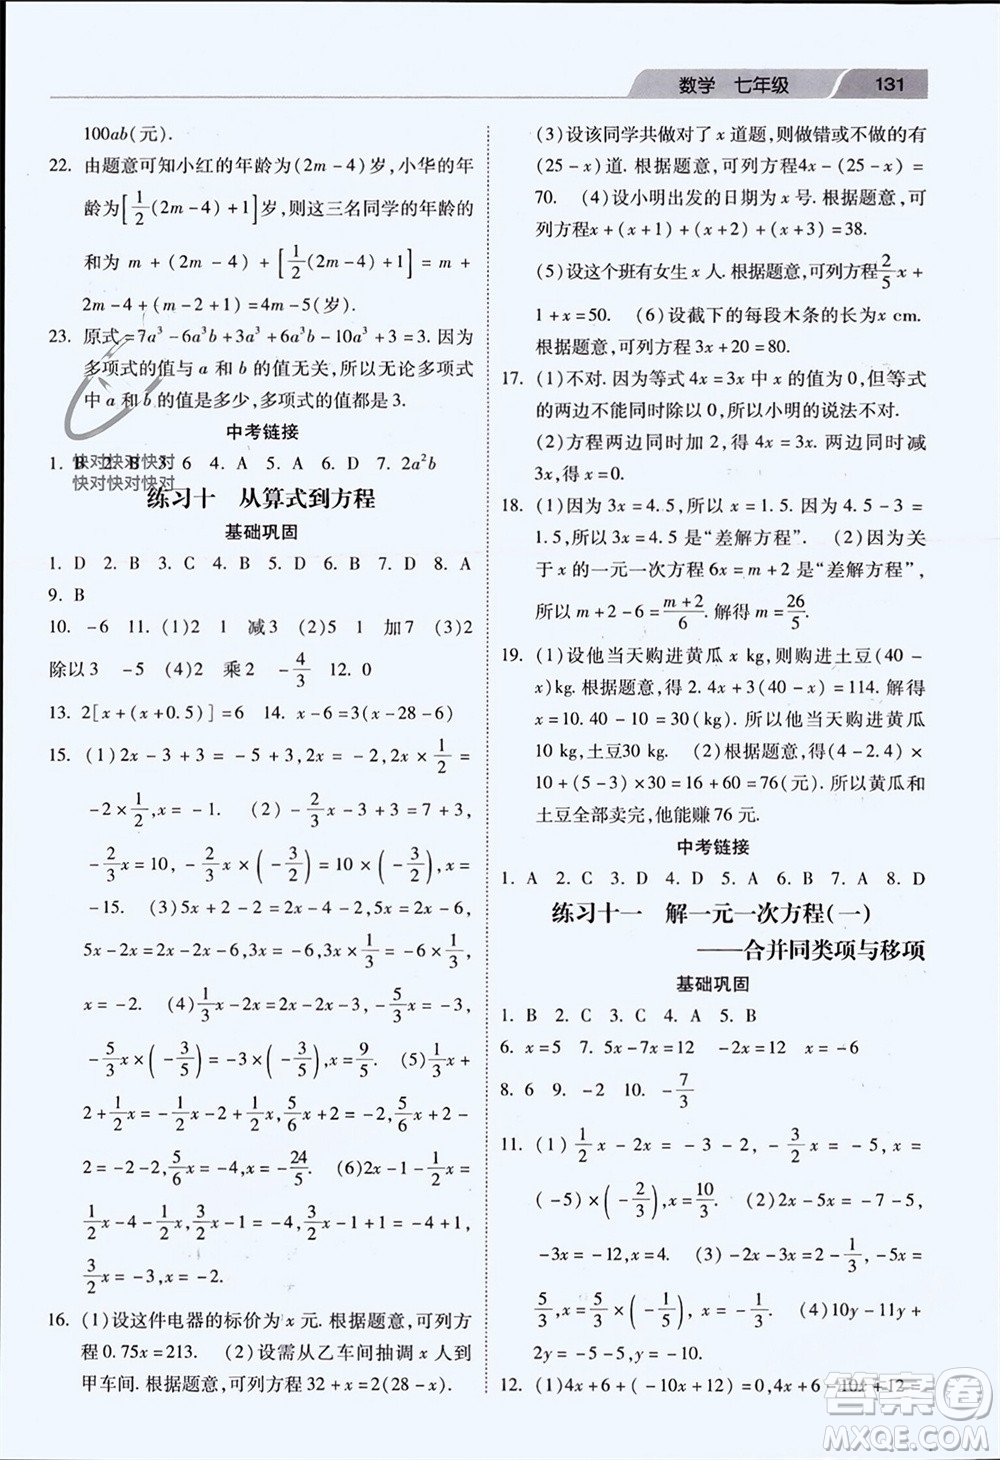 数学 七年级 131
100ab(元).
22. 由题意可知小红的年龄为(2m-4)岁,小华的年
龄为[1/2(2m-4)+1]岁,则这三名同学的年龄的
和为 m+(2m-4)+[1/2(2m-4)+1]=m+
2m-4+(m-2+1)=4m-5(岁).
23. 原式=7a³-6a³b+3a³+6a³b-10a³+3=3. 因为
多项式的值与 a 和 b 的值无关,所以无论多项式
中 a 和 b 的值是多少,多项式的值都是 3.
中考链接
1. B 2. B 3. 6 4. A 5. A 6. D 7. 2a²b
快对快对快对
快对快对快对
练习十 从算式到方程
基础巩固
1. D 2. B 3. C 4. B 5. D 6. B 7. D 8. A
9. B
10. -6 11. (1)2 1 减3 (2)5 1 加7 (3)2
除以3 -5 (4)2 乘2 -4/3 12. 0
13. 2[x+(x+0.5)]=6 14. x-6=3(x-28-6)
15. (1)2x-3+3=-5+3,2x=-2,2x×1/2=
-2×1/2,x=-1. (2)-2/3x-3+3=7+3,
-2/3x=10,-2/3x×(-3/2)=10×(-3/2),x=
-15. (3)5x+2-2=2x-4-2,5x=2x-6,
5x-2x=2x-2x-6,3x=-6,3x×1/3=-6×1/3,
x=-2. (4)1/3x-2x=2x-2x-3,-5/3x=-3,
-5/3x×(-3/5)=-3×(-3/5),x=9/5. (5)1/3x+
2+1/2x=-1/2x-2+1/2x,5/6x+2=-2,5/6x+2-
2=-2-2,5/6x=-4,x=-24/5. (6)2x-1-
1/2x=1/2x-4-1/2x,3/2x-1=-4,3/2x-1+1=-4+1,
3/2x=-3,x=-2.
16. (1)设这件电器的标价为 x 元. 根据题意,可列方
程 0.75x=213. (2)设需从乙车间抽调 x 人到
甲车间. 根据题意,可列方程 32+x=2(28-x).
(3)设该同学共做对了 x 道题,则做错或不做的有
(25-x)道. 根据题意,可列方程4x-(25-x)=
70. (4)设小明出发的日期为 x 号. 根据题意,可
列方程x+(x+1)+(x+2)+(x+3)=38.
(5)设这个班有女生 x 人. 根据题意,可列方程2/5x+
1+x=50. (6)设截下的每段木条的长为x cm.
根据题意,可列方程 3x+20=80.
17. (1)不对. 因为等式 4x=3x 中 x 的值为 0,但等式
的两边不能同时除以 0,所以小明的说法不对.
(2)方程两边同时加 2,得 4x=3x. 方程两边同时减
3x,得 x=0.
18. (1)因为 3x=4.5,所以 x=1.5. 因为 4.5-3=
1.5,所以 3x=4.5 是“差解方程”. (2)因为关
于 x 的一元一次方程 6x=m+2 是“差解方程”,
所以 m+2-6=(m+2)/6. 解得 m=26/5.
19. (1)设他当天购进黄瓜 x kg,则购进土豆(40-
x)kg. 根据题意,得 2.4x+3(40-x)=114. 解得
x=10. 40-10=30(kg). 所以他当天购进黄瓜
10 kg,土豆30 kg. (2)根据题意,得(4-2.4)×
10+(5-3)×30=16+60=76(元). 所以黄瓜和
土豆全部卖完,他能赚 76 元.
中考链接
1. A 2. C 3. D 4. D 5. A 6. B 7. A 8. D
练习十一 解一元一次方程(一)
——合并同类项与移项
基础巩固
1. B 2. C 3. C 4. A 5. B
6. x=5 7. 5x-7x=12 -2x=12 x=-6
8. 6 9. -2 10. -7/3
11. (1)1/2x-2x=-3-2,-3/2x=-5,x=
(-5)×(-2/3),x=10/3. (2)2x-5x=-7-5,
-3x=-12,x=4. (3)-2x=-2-1/3,-2x=-
5/3,x=5/3×1/2,x=5/6. (4)10y-11y+
2y=-5-5,y=-10.
12. (1)4x+6+(-10x+12)=0,4x+6-10x+12=
答案圈
MXQE.COM